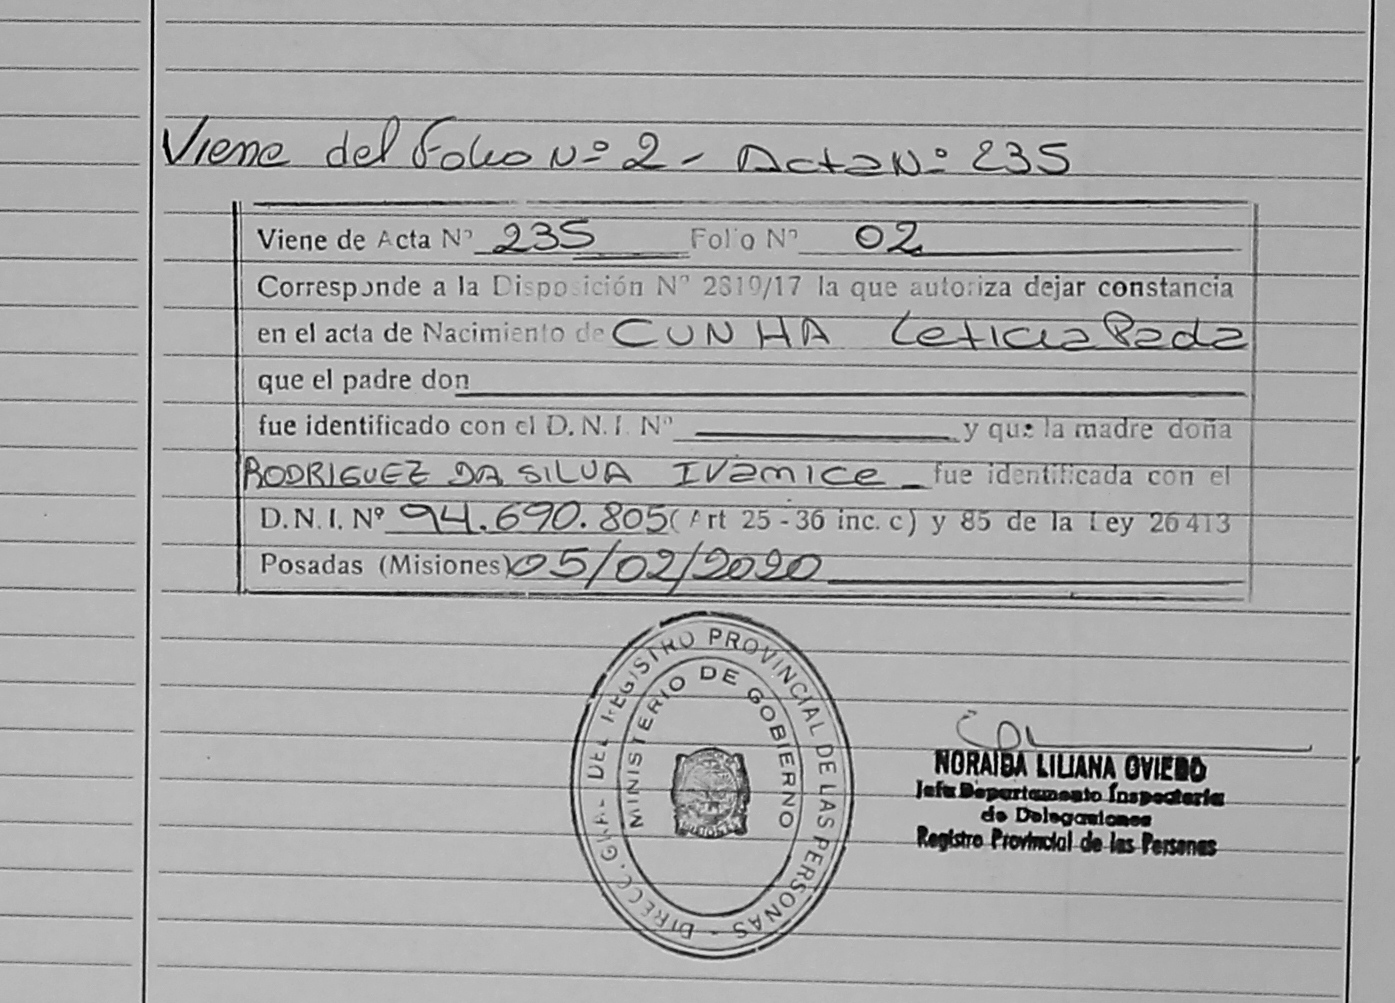 Viene del Folio Nº 2 - Acta Nº 235
Viene de Acta Nº 235 Folio Nº 02
Corresponde a la Disposición Nº 2819/17 la que autoriza dejar constancia
en el acta de Nacimiento de CUNHA Leticia
que el padre don
fue identificado con el D. N. I. Nº y que la madre doña
RODRIGUEZ DA SILVA Ivanice fue identificada con el
D. N. I. Nº 94.690.805 (Art 25 - 36 inc. c) y 85 de la Ley 26413
Posadas (Misiones) 05/02/2020
DIRECC. GRAL DEL REGISTRO PROVINCIAL DE LAS PERSONAS -
MINISTERIO DE GOBIERNO
NORAIDA LILIANA OVIEDO
Jefa Departamento Inspectoría
de Delegaciones
Registro Provincial de las Personas